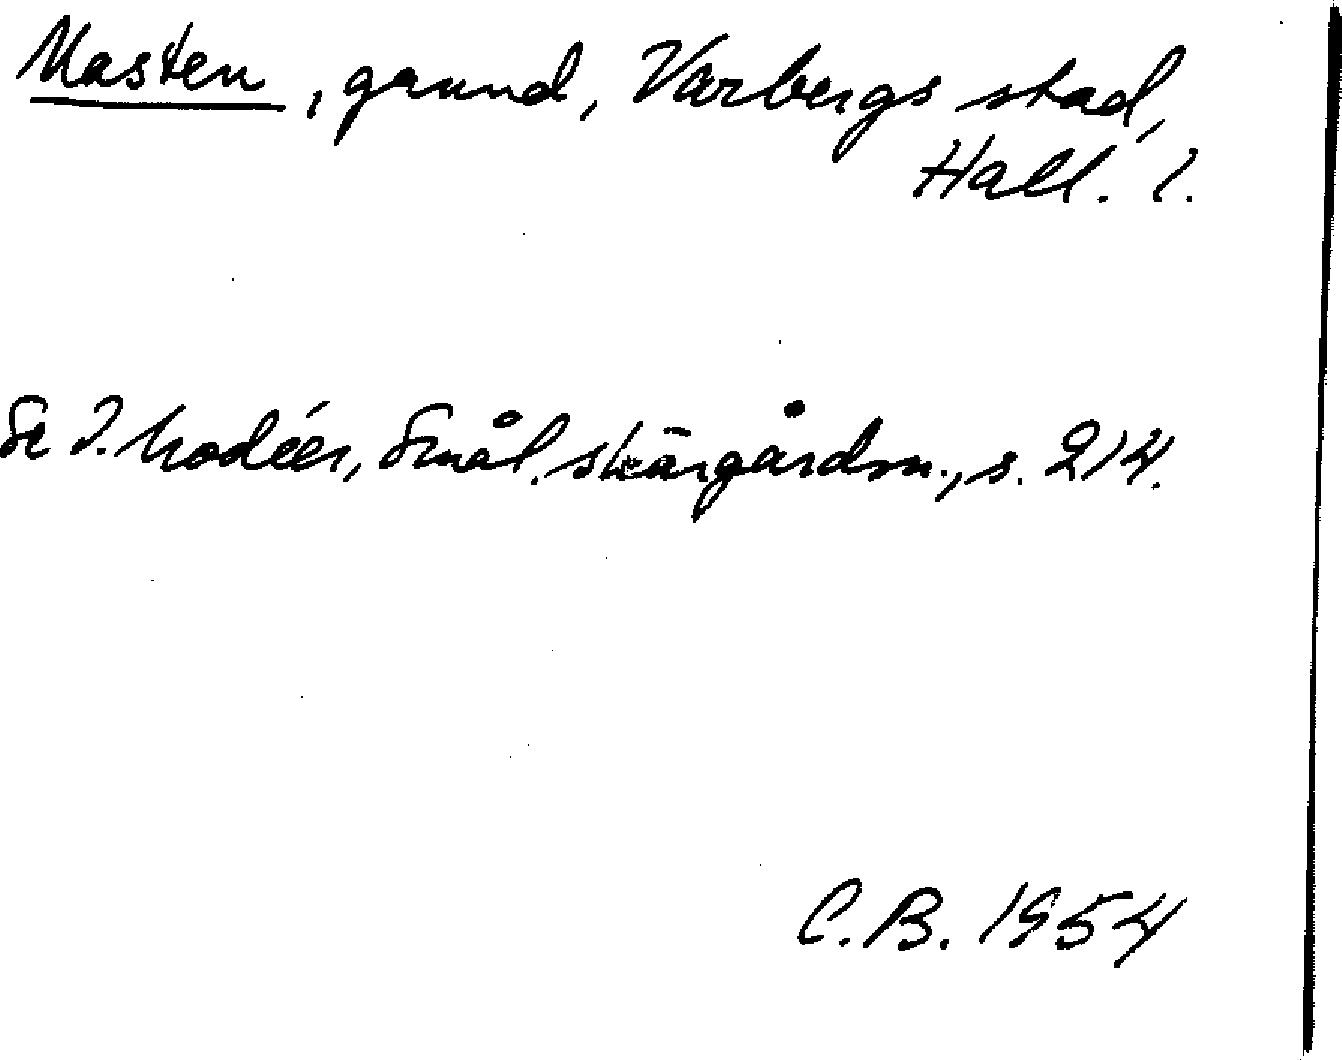 Masten, grund, Varbergs stad,
Hall. l.
Se I. Modéer, Smål. skärgårdsn., s. 214.
C.B. 1954